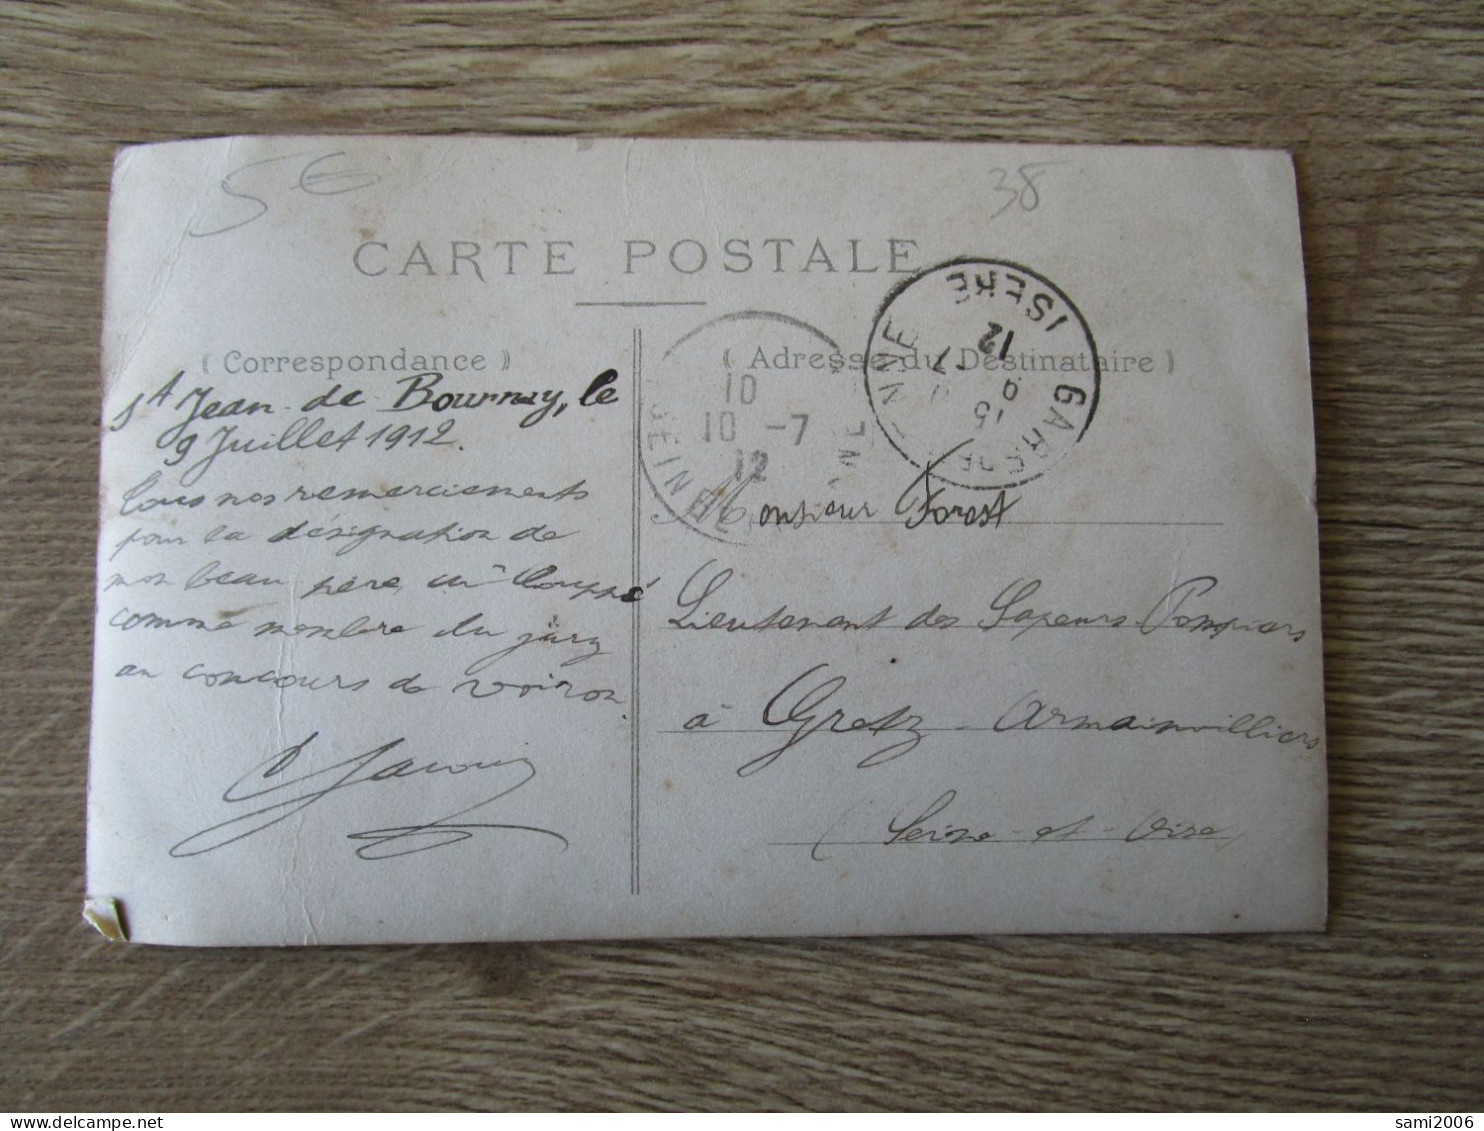 5€
38
CARTE POSTALE
( Correspondance )
( Adresse du Destinataire )
GARE DE
ISERE
15
9 -7
12
10
10 -7
12
St Jean-de Bournay, le
9 Juillet 1912.
Tous nos remerciements
pour la désignation de
mon beau père, Mr
comme membre du jury
au concours de Voiron.
Monsieur Forest
Lieutenant des Sapeurs-Pompiers
à Gretz-Armainvilliers
(Seine-et-Oise)
sami2006